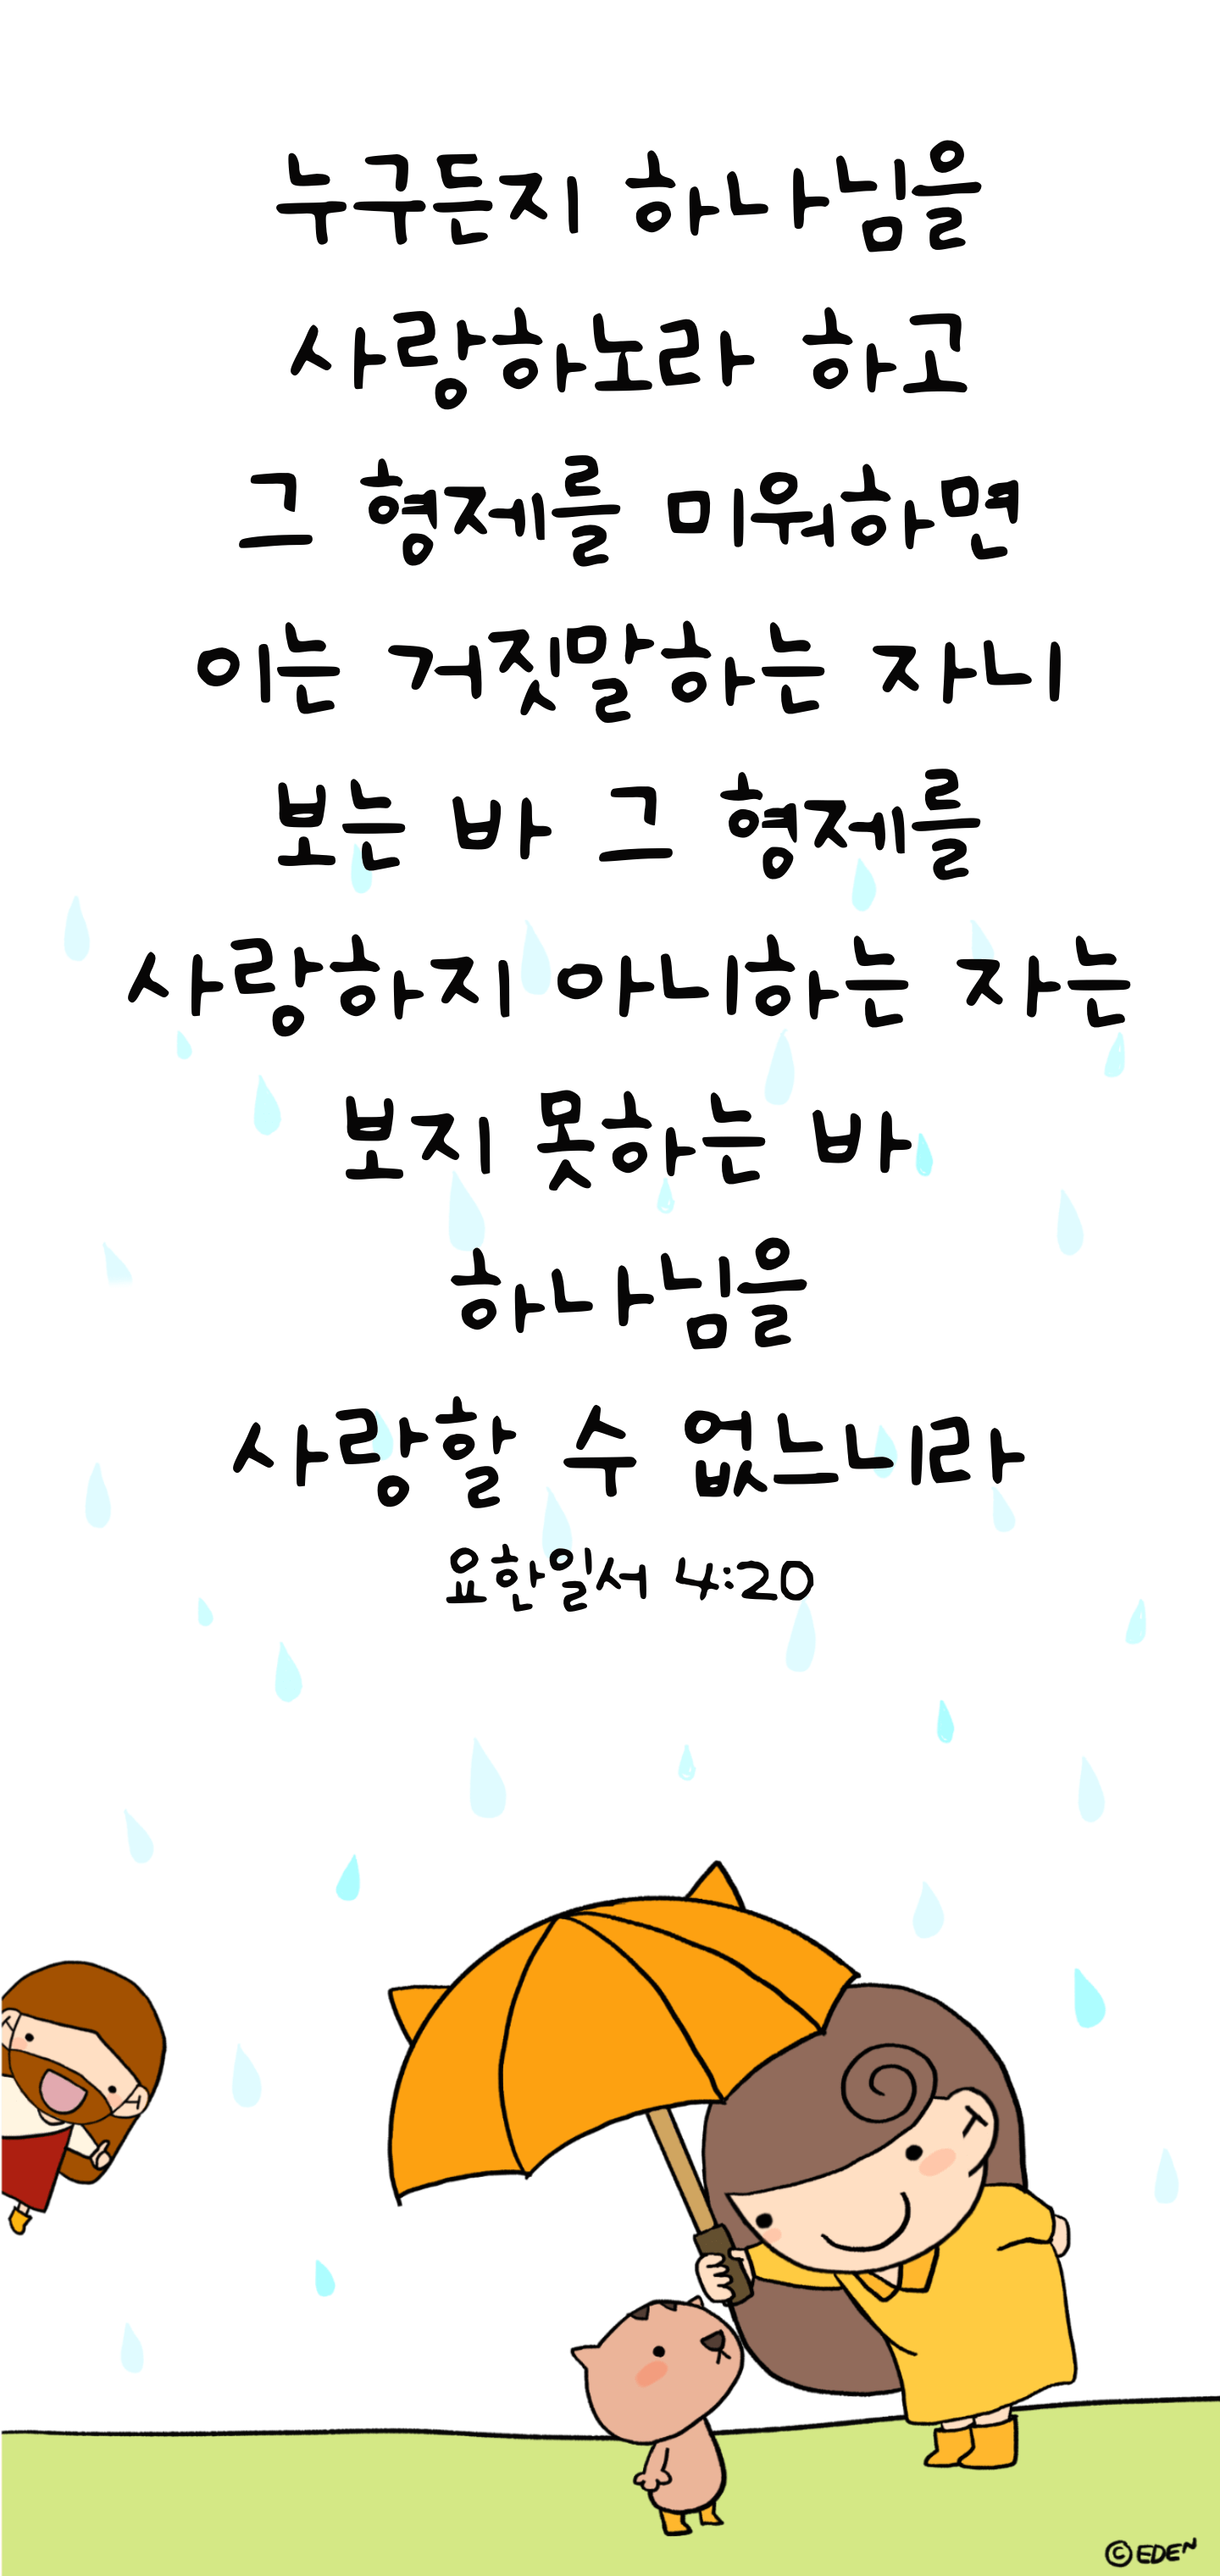 누구든지 하나님을
사랑하노라 하고
그 형제를 미워하면
이는 거짓말하는 자니
보는 바 그 형제를
사랑하지 아니하는 자는
보지 못하는 바
하나님을
사랑할 수 없느니라
요한일서 4:20
©EDEN